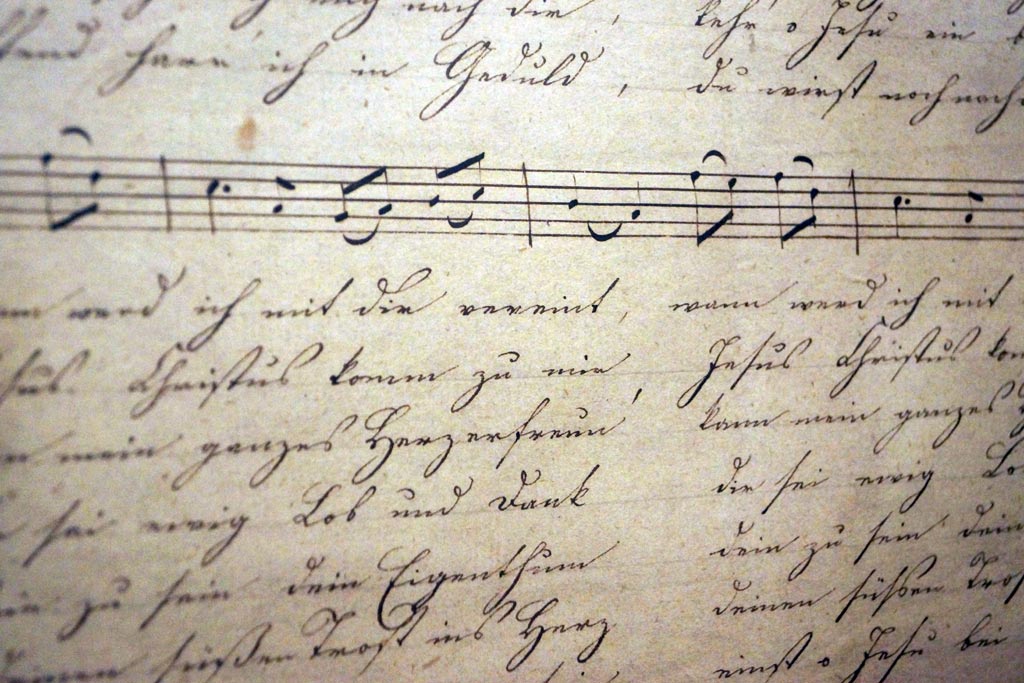 nach dir, kehr o Jesu ein
harr ich in Geduld, du wirst noch nach
werd ich mit dir vereint, wann werd ich mit
sus Christus komm zu mir, Jesus Christus kom
mein ganzes Herz erfreun kann mein ganzes
sei ewig Lob und Dank dir sei ewig Lo
zu sein dein Eigenthum dein zu sein dein
süßen Trost ins Herz deinen süßen Tros
einst o Jesu bei